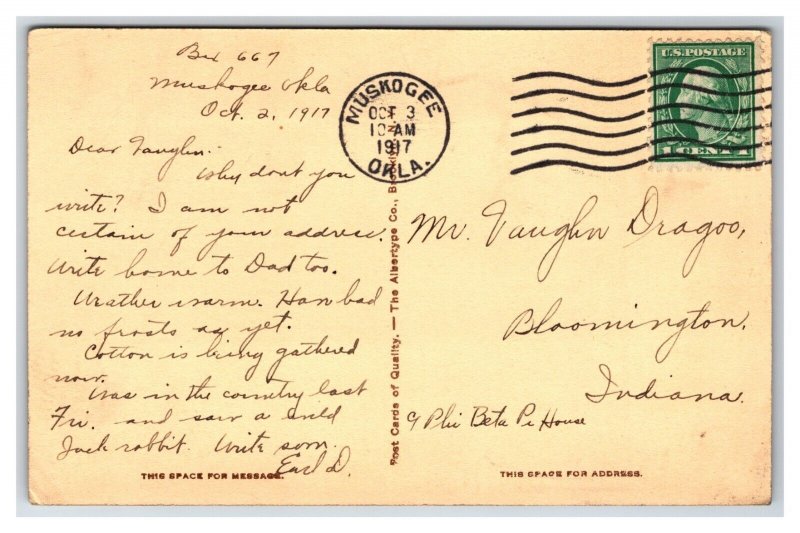 Box 667
Muskogee Okla
Oct. 2, 1917
Dear Vaughn:
Why dont you
write? I am not
certain of your address.
Write home to Dad too.
Weather is warm. Have had
no frosts as yet.
Cotton is being gathered
now.
Was in the country last
Fri. and saw a wild
Jack rabbit. Write soon.
Earl D.
THIS SPACE FOR MESSAGE.
Post Cards of Quality. — The Albertype Co.,
MUSKOGEE
OCT 3
10 AM
1917
OKLA.
U.S. POSTAGE
1 CENT 1
Mr. Vaughn Dragoo,
Bloomington,
Indiana.
Phi Beta Pi House
THIS SPACE FOR ADDRESS.